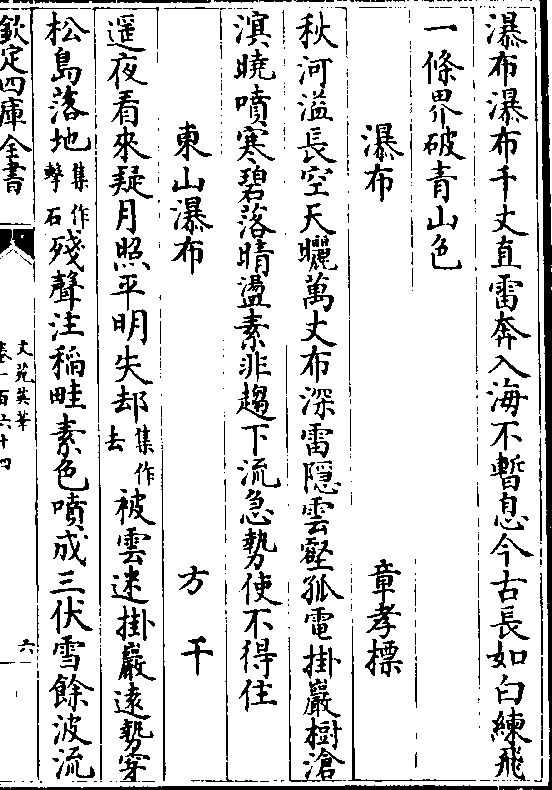 瀑布瀑布千丈直雷奔入海不暫息今古長如白練飛
一條界破青山色
瀑布　章孝標
秋河溢長空天曬萬丈布深雷隱雲壑孤電掛巖樹滄
溟曉噴寒碧落晴盪素非趨下流急勢使不得住
東山瀑布　方干
遥夜看來疑月照平明失却集作去被雲迷掛巖遠勢穿
松島落地集作擊石殘聲注稻畦素色噴成三伏雪餘波流
欽定四庫全書
文苑英華
卷一百六十四
六